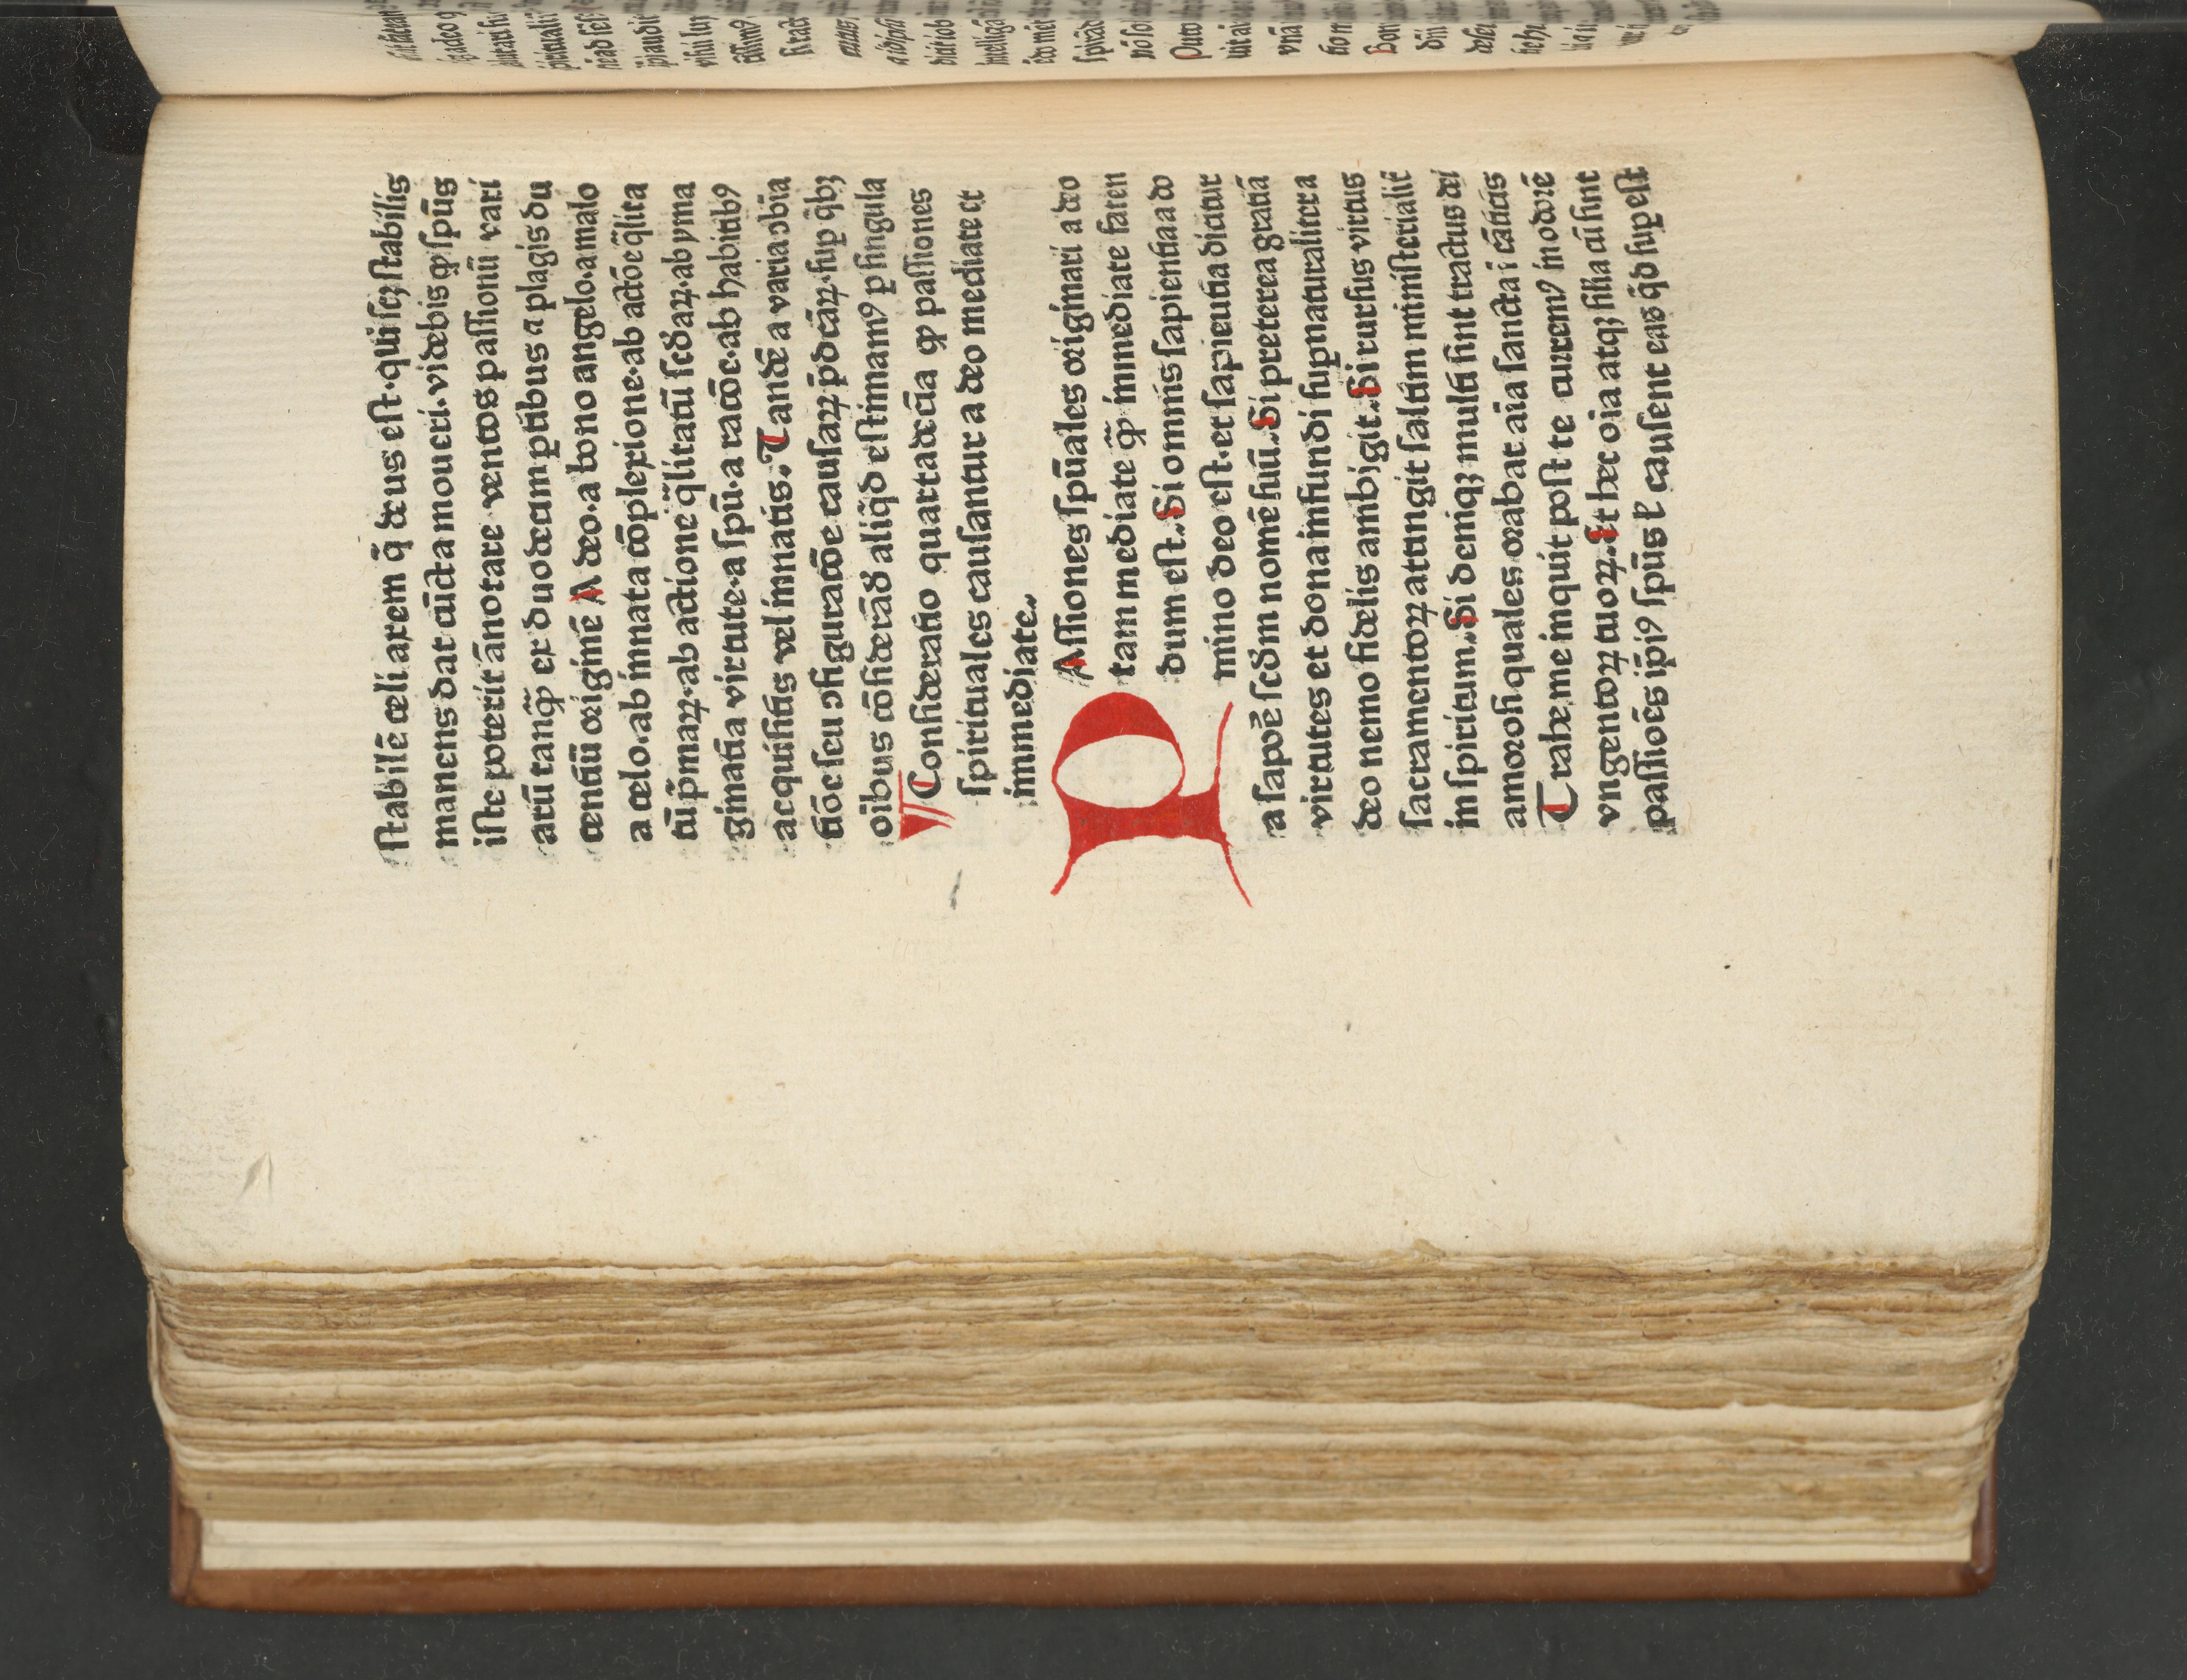 ſtabilē celi axem q̄ deus eſt·qui ſcꝫ ſtabilis
manens dat cūcta moueri·videbis ꝙ ſpūs
iſte poterit ānotare ventos paſſionū vari
arū tanꝙ̄ ex duodecim ꝑtibus a plagis du
centiū originē A deo·a bono angelo·a malo
a celo·ab innata cōplexione·ab actōe q̄lita
tū p̄maꝝ·ab actione q̄litatū ſcd̄aꝝ·ab yma
ginatīa virtute·a ſpū·a racōe·ab habitibꝰ
acquiſitis vel innatis. Tandē a varia ↄbīa
tiōe ſeu ↄfiguratōe cauſaꝝ p̄dc̄aꝝ·ſuꝑ q̄bꝫ
oībus cōſiderād aliq̄d eſtimamꝰ ꝑ ſingula
Conſideratio quartadecīa ꝙ paſſiones
ſpirituales cauſantur a deo mediate et
immediate.
PAſſiones ſpūales originari a deo
tam mediate ꝙ̄ immediate faten
dum eſt. Si omnis ſapientia a do
mino deo eſt·et ſapieutia dicitur
a ſapore ſcd̄m nomē ſuū. Si preterea gratiā
virtutes et dona infundi ſuꝑnaturaliter a
deo nemo fidelis ambigit. Si rurſus virtus
ſacramentoꝝ attingit ſaltim miniſterialit̄
in ſpiritum. Si deniqꝫ multi ſint tractus dei
amoroſi quales orabat aīa ſancta ī cāticis
Trahe me inquit poſt te curremꝰ in odorē
vngentoꝝ tuoꝝ. Et hec oīa atqꝫ ſilia cū ſint
paſſiōes ip̄iꝰ ſpūs ł cauſent eas q̄d ſuꝑeſt